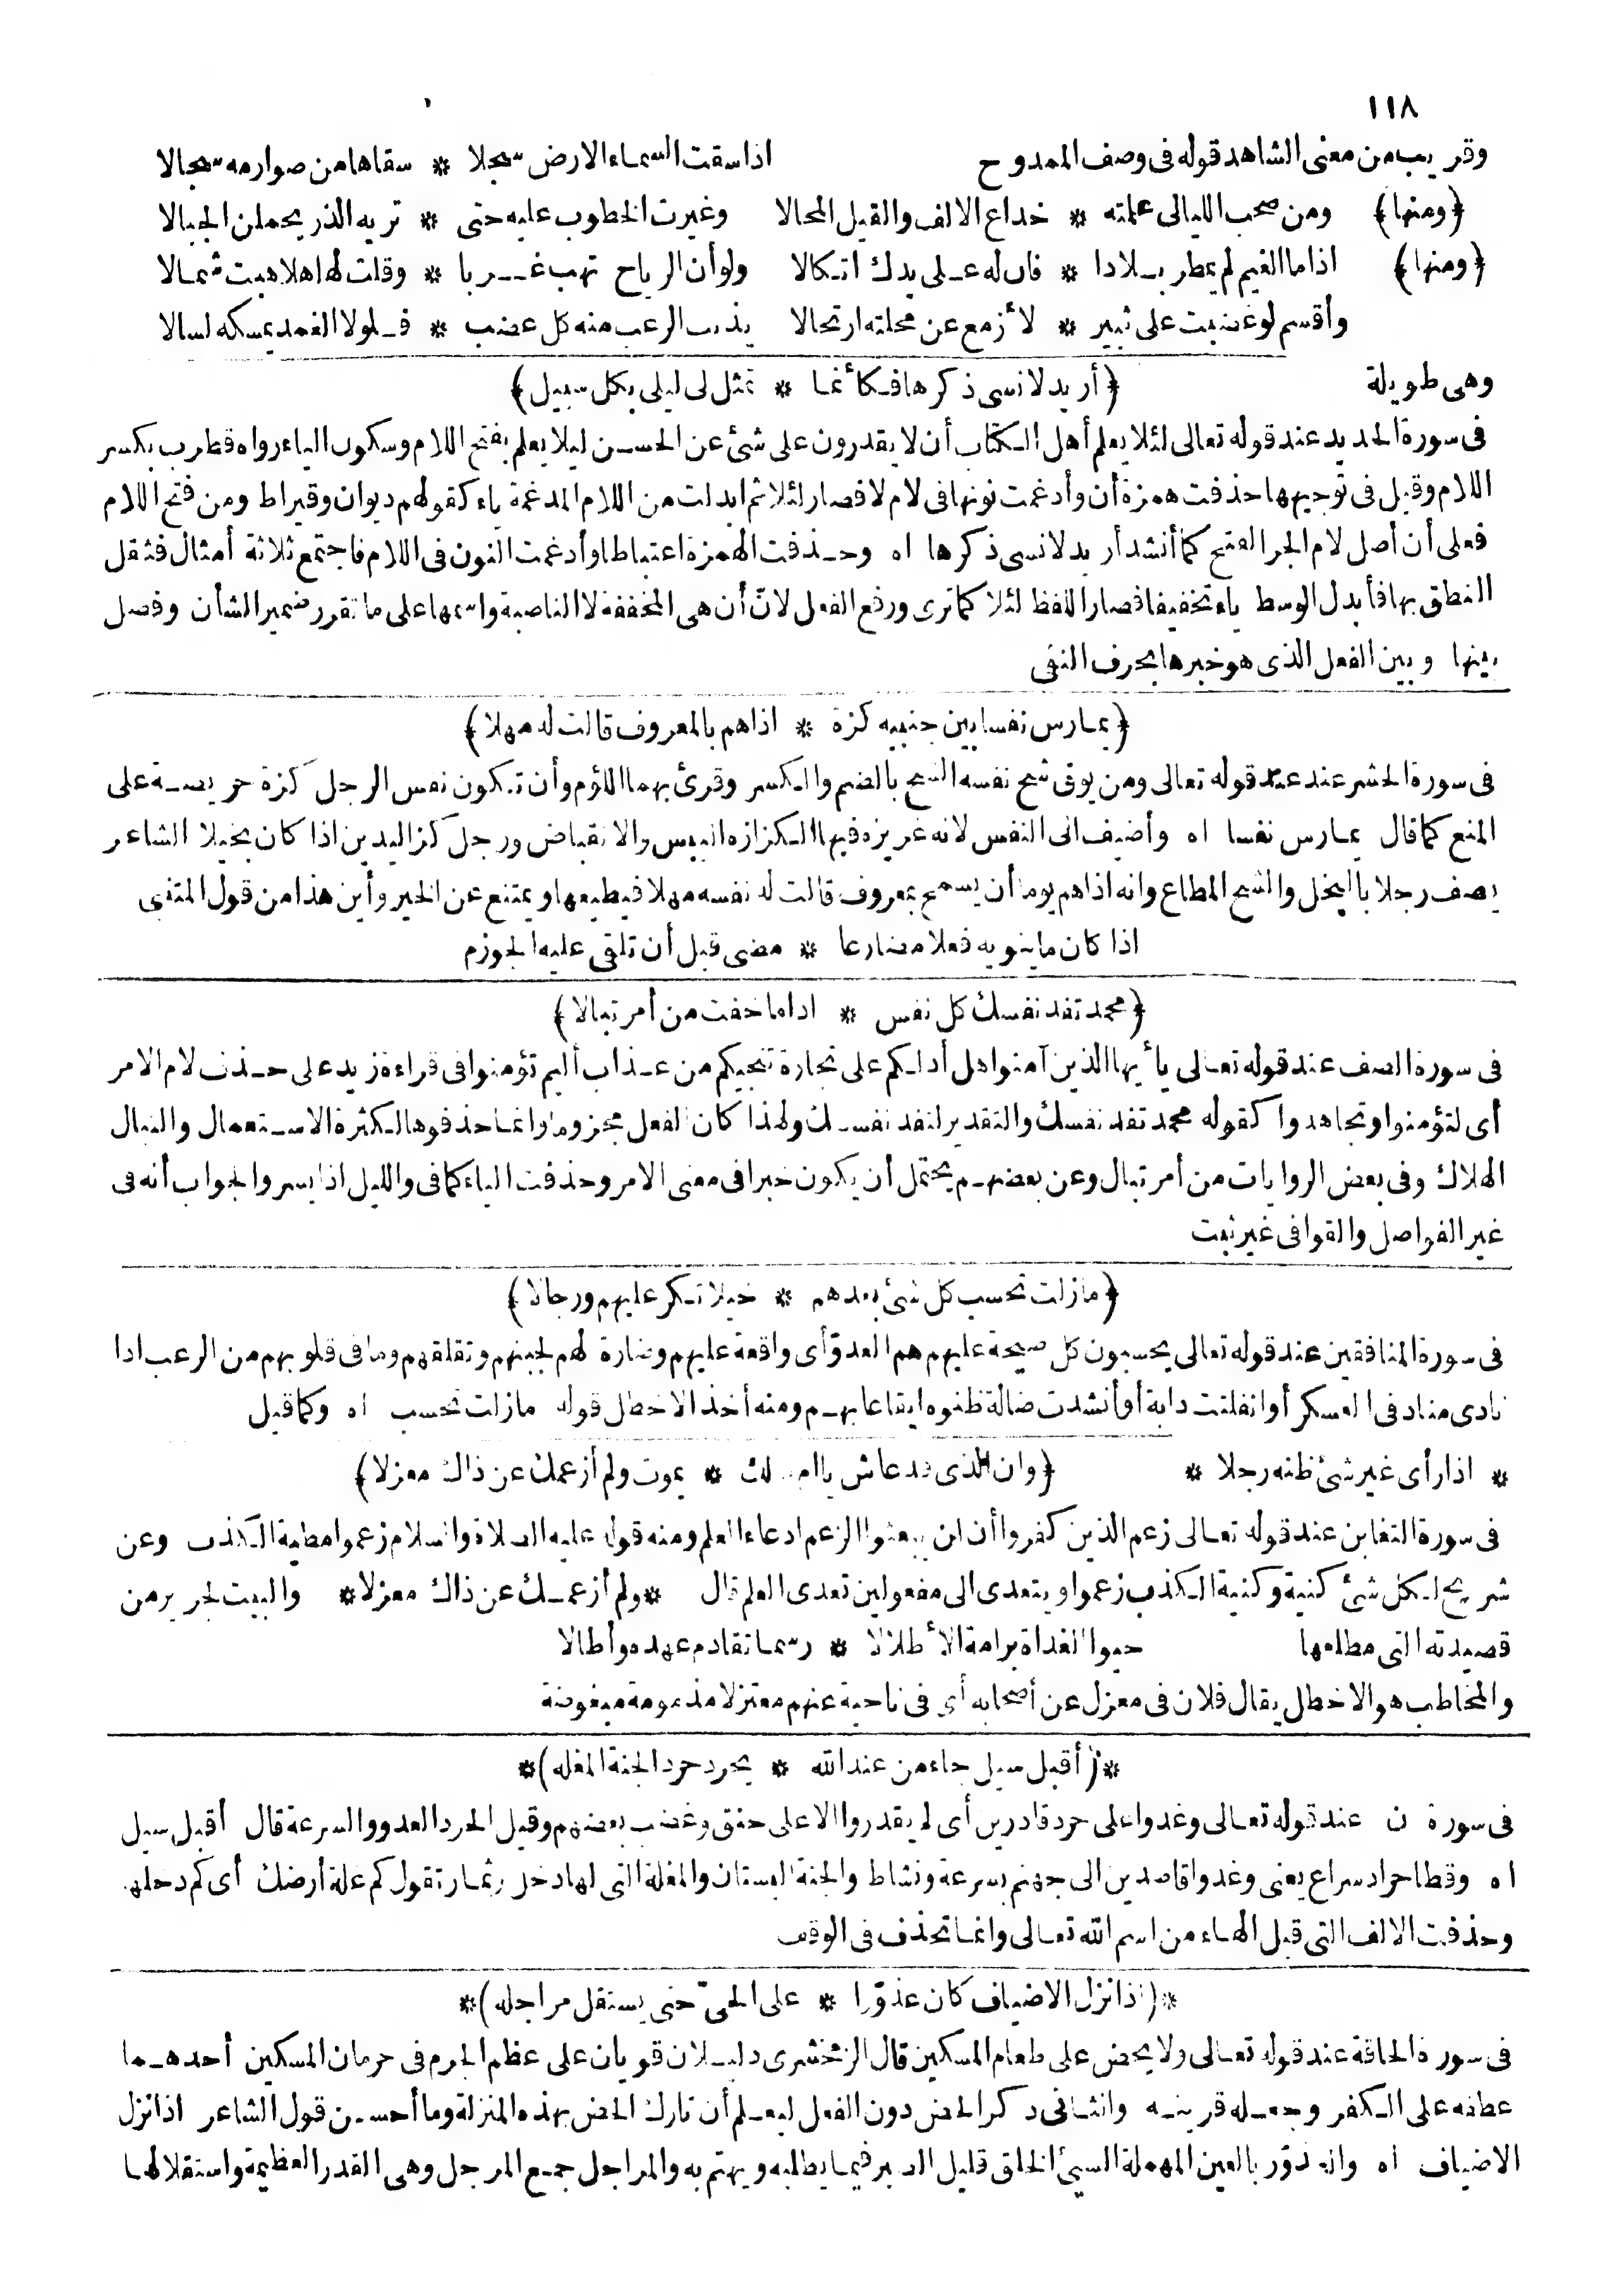 ١١٨
وقريب من معنى الشاهد قوله فى وصف الممدوح اذا سقت السماء الارض سجلا * سقاها من صوارمه سجالا
﴿ومنها﴾ ومن صحب الليالى علمته * خداع الالف والقيل المحالا وغيرت الخطوب عليه حتى * تريه الذر يحملن الجبالا
﴿ومنها﴾ اذا ما الغيم لم يمطر بلادا * فان له على يدك اتكالا ولو أن الرياح تهب غربا * وقلت لها هلا هبت شمالا
وأقسم لو غضبت على ثبير * لأزمع عن محلته ارتحالا يذيب الرعب منه كل عضب * فلولا الغمد يمسكه لسالا
وهى طويلة ﴿أريد لانسى ذكرها فكأنما * تمثل لى ليلى بكل سبيل﴾
فى سورة الحديد عند قوله تعالى لئلا يعلم أهل الكتاب أن لا يقدرون على شئ عن الحسن ليلا يعلم بفتح اللام وسكون الياء رواه قطرب بكسر
اللام وقيل فى توجيهها حذفت همزة أن وأدغمت نونها فى لام لا فصار لئلا ثم ابدلت من اللام المدغمة ياء كقولهم ديوان وقيراط ومن فتح اللام
فعلى أن أصل لام الجر الفتح كما أنشد أريد لانسى ذكرها اه وحذفت الهمزة اعتباطا وأدغمت النون فى اللام فاجتمع ثلاثة أمثال فثقل
النطق بها فأبدل الوسط ياء تخفيفا فصار اللفظ لئلا كما ترى ورفع الفعل لانّ أن هى المخففة لا الناصبة واسمها على ما تقرر ضمير الشأن وفصل
بينها وبين الفعل الذى هو خبرها بحرف النفى
﴿يمارس نفسا بين جنبيه كزة * اذا هم بالمعروف قالت له مهلا﴾
فى سورة الحشر عند عند قوله تعالى ومن يوق شح نفسه الشح بالضم والكسر وقرئ بهما اللؤم وأن تكون نفس الرجل كزة حريصة على
المنع كما قال يمارس نفسا اه وأضيف الى النفس لانه غريزة فيها الكزازه اليبس والانقباض ورجل كز اليدين اذا كان بخيلا الشاعر
يصف رجلا بالبخل والشح المطاع وانه اذا هم يوما أن يسمح بمعروف قالت له نفسه مهلا فيطيعها ويمتنع عن الخير وأين هذا من قول المتنبى
اذا كان ما ينويه فعلا مضارعا * مضى قبل أن تلقى عليه الجوزم
﴿محمد تفد نفسك كل نفس * اذا ما خفت من أمر تبالا﴾
فى سورة الصف عند قوله تعالى يأيها الذين آمنوا هل أدلكم على تجارة تنجيكم من عذاب أليم تؤمنوا فى قراءة زيد على حذف لام الامر
أى لتؤمنوا وتجاهدوا كقوله محمد تفد نفسك والتقدير لتفد نفسك ولهذا كان الفعل مجزوما وانما حذفوها لكثرة الاستعمال والتبال
الهلاك وفى بعض الروايات من أمر تبال وعن بعضهم يحتمل أن يكون خبرا فى معنى الامر وحذفت الياء كما فى والليل اذا يسر والجواب أنه فى
غير الفواصل والقوافى غير ثبت
﴿ما زلت تحسب كل شئ بعدهم * خيلا تكر عليهم ورجالا﴾
فى سورة المنافقين عند قوله تعالى يحسبون كل صيحة عليهم هم العدوّ أى واقعة عليهم وضارة لهم لجبنهم وتقلقهم وما فى قلوبهم من الرعب اذا
نادى مناد فى العسكر أو انفلتت دابة أو أنشدت ضالة ظنوه ايقاعا بهم ومنه أخذ الاخطل قوله مازلت تحسب اه وكما قيل
* اذا رأى غير شئ ظنه رجلا * ﴿وان الذى قد عاش يا ام مالك * يموت ولم أزعمك عن ذاك معزلا﴾
فى سورة التغابن عند قوله تعالى زعم الذين كفروا أن لن يبعثوا الزعم ادعاء العلم ومنه قوله عليه الصلاة والسلام زعموا مطية الكذب وعن
شريح لكل شئ كنية وكنية الكذب زعموا ويتعدى الى مفعولين تعدى العلم قال *ولم أزعمك عن ذاك معزلا* والبيت لجرير من
قصيدته التى مطلعها حيوا الغداة برامة الأطلالا * رسما تقادم عهده وأطالا
والمخاطب هو الاخطل يقال فلان فى معزل عن أصحابه أى فى ناحية عنهم معتزلا مذمومة مبغوضة
*(أقبل سيل جاء من عند الله * يحرد حرد الجنة المغله)*
فى سورة ن عند قوله تعالى وغدوا على حرد قادرين أى لم يقدروا الا على حنق وغضب بعضهم وقيل الحرد العدو والسرعة قال أقبل سيل
اه وقطا حراد سراع يعنى وغدوا قاصدين الى جهتهم بسرعة ونشاط والجنة البستان والمغلة التى لها دخل وثمار تقول كم غلة أرضك أى كم دخلها
وحذفت الالف التى قبل الهاء من اسم الله تعالى وانما تحذف فى الوقف
*(اذا نزل الاضياف كان عذوّرا * على الحىّ حتى يستقل مراجله)*
فى سورة الحاقة عند قوله تعالى ولا يحض على طعام المسكين قال الزمخشرى دليلان قويان على عظم الجرم فى حرمان المسكين أحدهما
عطفه على الكفر وجعله قرينه والثانى ذكر الحض دون الفعل ليعلم أن تارك الحض بهذه المنزلة وما أحسن قول الشاعر اذا نزل
الاضياف اه والعذوّر بالعين المهملة السيئ الخلق قليل الصبر فيما يطلبه ويهتم به والمراجل جمع المرجل وهى القدر العظيمة واستقلالها